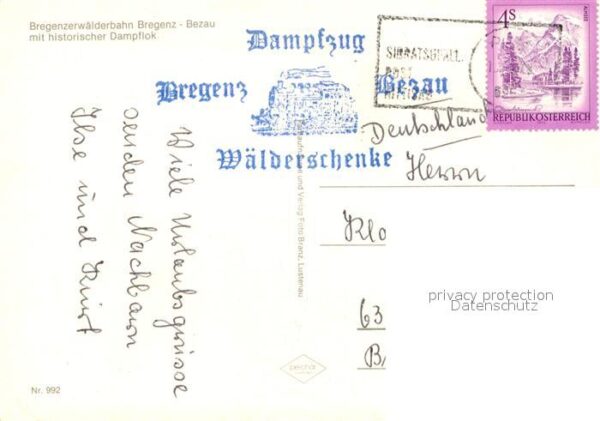 Bregenzerwälderbahn Bregenz - Bezau
mit historischer Dampflok
Dampfzug
Bregenz
Bezau
Wälderschenke
4S
REPUBLIK ÖSTERREICH
Viele Urlaubsgrüsse
senden Nachbarn
Ilse und Kurt
und Verlag Foto Branz, Lustenau
Deutschland
Herrn
Klo
63
B
privacy protection
Datenschutz
Nr. 992